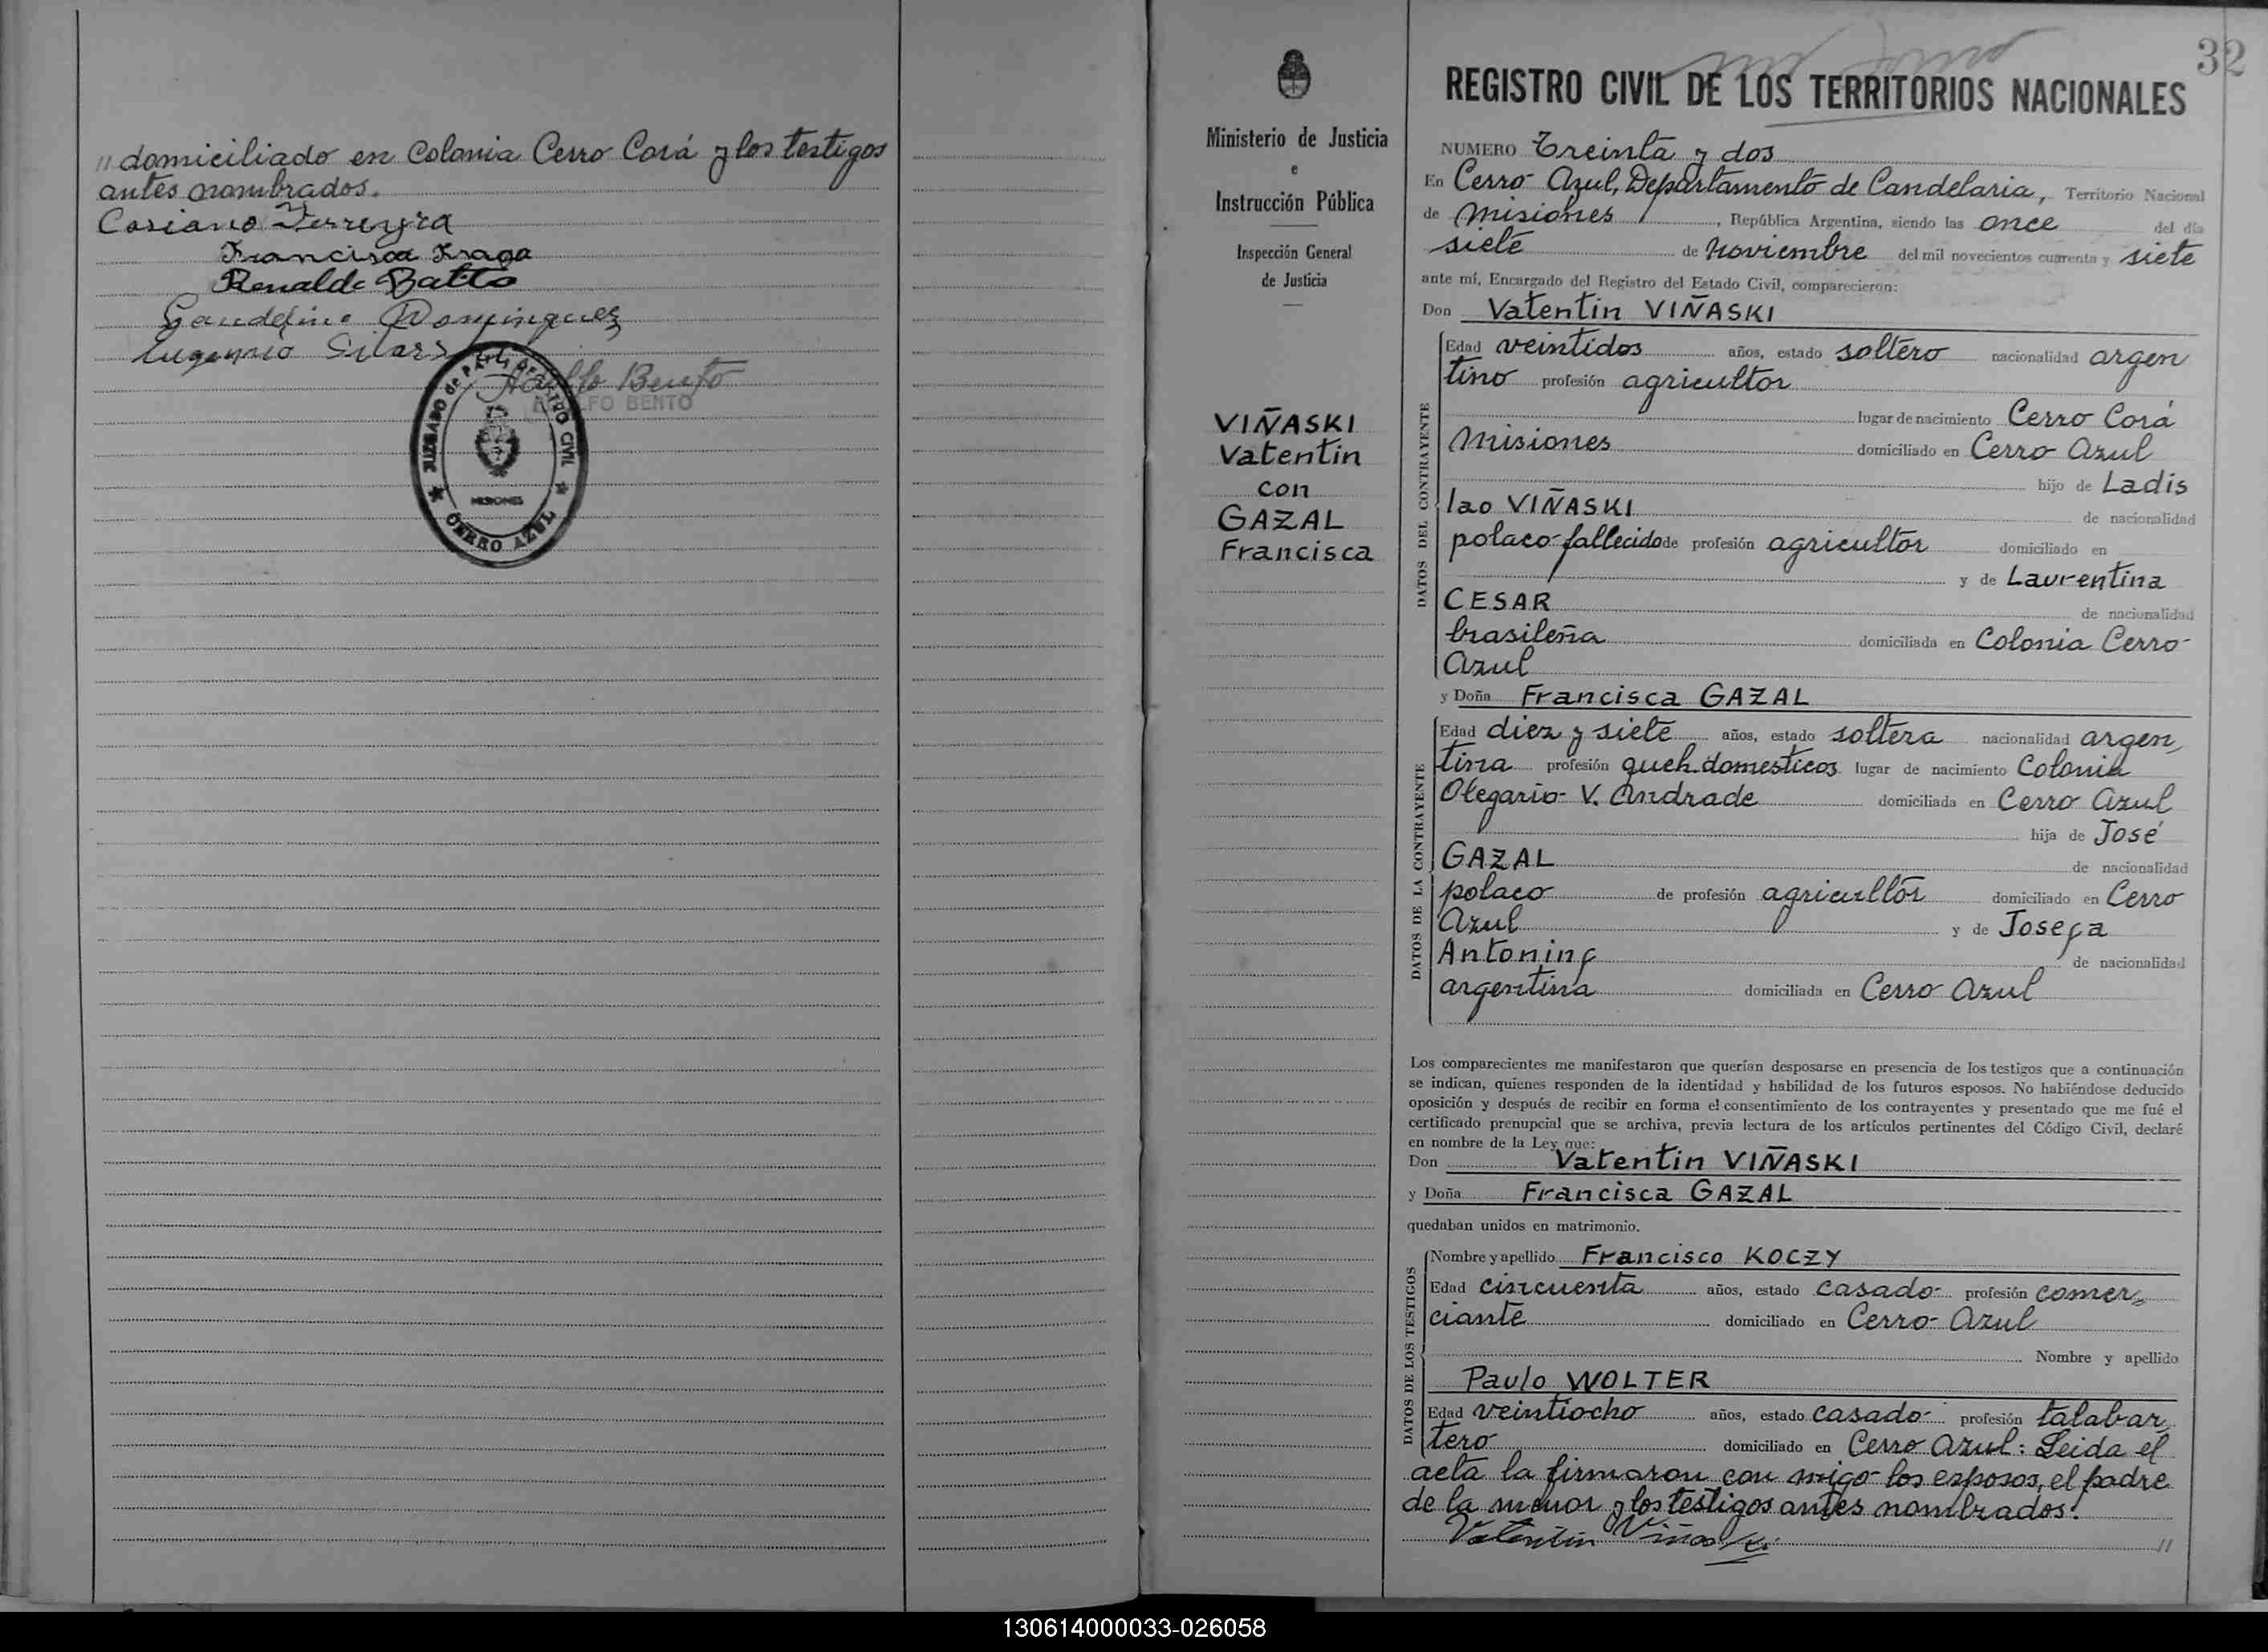 " domiciliado en Colonia Cerro Corá y los testigos
antes nombrados.
Casiano Ferreyra
Francisca Fraga
Renaldo Batto
Gaudelino Dominguez
Eugenio
Adolfo Bento
ADOLFO BENTO
JUZGADO de PAZ REGISTRO CIVIL
MISIONES
CERRO AZUL
32
Ministerio de Justicia
e
Instrucción Pública
Inspección General
de Justicia
VIÑASKI
Valentin
con
GAZAL
Francisca
REGISTRO CIVIL DE LOS TERRITORIOS NACIONALES
NUMERO Treinta y dos
En Cerro Azul, Departamento de Candelaria, Territorio Nacional
de Misiones, República Argentina, siendo las once del día
siete de noviembre del mil novecientos cuarenta y siete
ante mí, Encargado del Registro del Estado Civil, comparecieron:
Don Valentin VIÑASKI
DATOS DEL CONTRAYENTE
Edad veintidos años, estado soltero nacionalidad argen
tino profesión agricultor
lugar de nacimiento Cerro Corá
Misiones domiciliado en Cerro Azul
hijo de Ladis
lao VIÑASKI de nacionalidad
polaco-fallecido de profesión agricultor domiciliado en
y de Laurentina
CESAR de nacionalidad
brasileña domiciliada en Colonia Cerro-
Azul
y Doña Francisca GAZAL
DATOS DE LA CONTRAYENTE
Edad diez y siete años, estado soltera nacionalidad argen,
tina profesión queh. domesticos lugar de nacimiento Colonia
Olegario V. Andrade domiciliada en Cerro Azul
hija de José
GAZAL de nacionalidad
polaco de profesión agricultor domiciliado en Cerro
Azul y de Josefa
Antoninf de nacionalidad
argentina domiciliada en Cerro Azul
Los comparecientes me manifestaron que querían desposarse en presencia de los testigos que a continuación
se indican, quienes responden de la identidad y habilidad de los futuros esposos. No habiéndose deducido
oposición y después de recibir en forma el consentimiento de los contrayentes y presentado que me fué el
certificado prenupcial que se archiva, previa lectura de los artículos pertinentes del Código Civil, declaré
en nombre de la Ley que:
Don Valentin VIÑASKI
y Doña Francisca GAZAL
quedaban unidos en matrimonio.
DATOS DE LOS TESTIGOS
Nombre y apellido Francisco KOCZY
Edad cincuenta años, estado casado profesión comer,
ciante domiciliado en Cerro-Azul
Nombre y apellido
Paulo WOLTER
Edad veintiocho años, estado casado profesión talabar,
tero domiciliado en Cerro Azul: Leida el
acta la firmaron con migo los esposos, el padre
de la menor y los testigos antes nombrados.
Valentin Viñaski
"
130614000033-026058